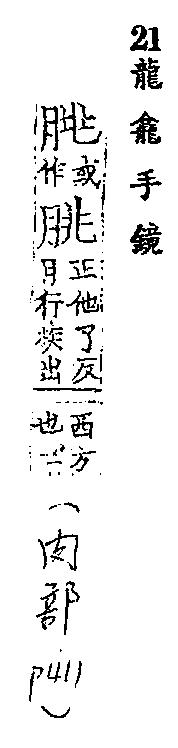 21龍龕手鏡
朓或作朓正他了反月行疾出
西方也二
(肉部 p411)